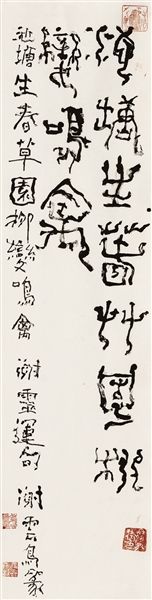 池塘生春草園柳
變鳴禽
池塘生春草園柳變鳴禽 謝靈運句 謝雲鳥篆